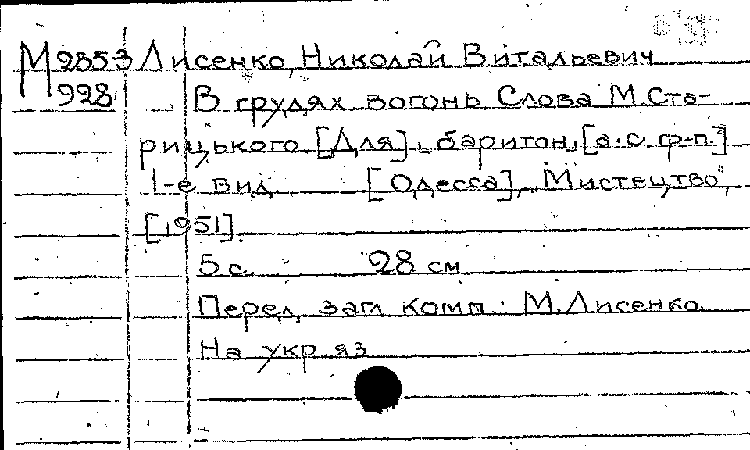 М2853 Лисенко, Николай Витальевич
928 В грудях вогонь Слова М. Ста-
рицького [Для] баритон, [а. с. ф-п.]
1-е вид [Одесса], "Мистецтво",
[1951].
5 с. 28 см
Перед загл комп: М. Лисенко
На укр яз